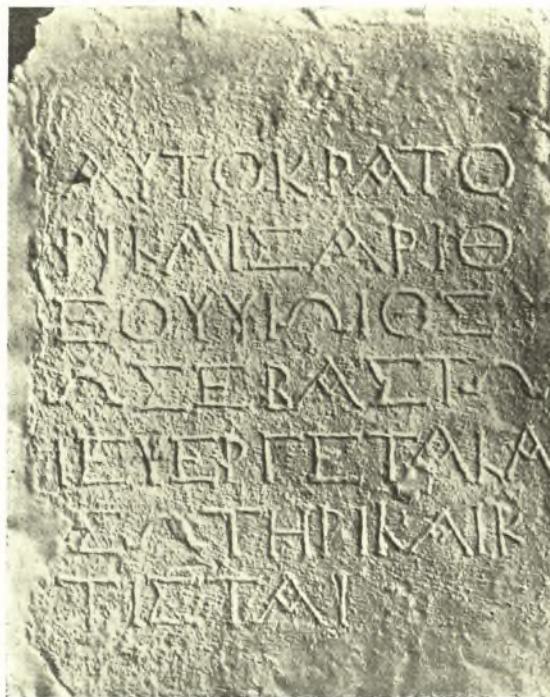 ΑΥΤΟΚΡΑΤΟ
ΡΙΚΑΙΣΑΡΙΘ
ΕΟΥΥΙΩΙΘΕ
ΩΣΕΒΑΣΤΩ
ΙΕΥΕΡΓΕΤΑΙΚΑ
ΣΩΤΗΡΙΚΑΙΚ
ΤΙΣΤΑΙ